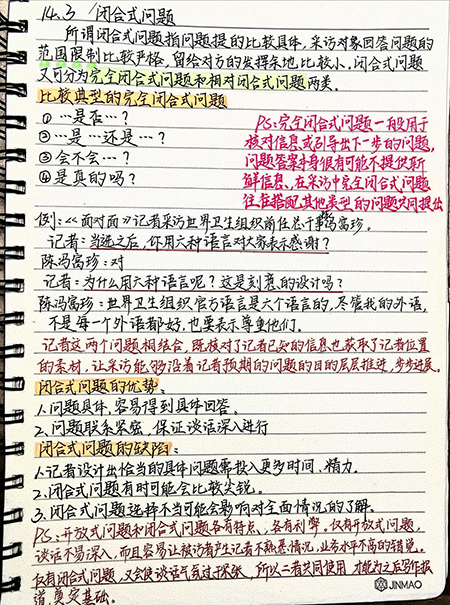 14.3 闭合式问题
所谓闭合式问题指问题提的比较具体，采访对象回答问题的
范围限制比较严格，留给对方的发挥余地比较小，闭合式问题
又可分为完全闭合式问题和相对闭合式问题两类。
比较典型的完全闭合式问题
① …是否…？
② …是…还是…？
③ 会不会…？
④ 是真的吗？
PS：完全闭合式问题一般用于
核对信息或引导出下一步的问题，
问题答案本身很有可能不提供新
鲜信息、在采访中完全闭合式问题
往往搭配其他类型的问题共同提出
例：《面对面》记者采访世界卫生组织前任总干事冯富珍。
记者：当选之后，你用六种语言对大家表示感谢？
陈冯富珍：对
记者：为什么用六种语言呢？这是刻意的设计吗？
陈冯富珍：世界卫生组织官方语言是六个语言的，尽管我的外语，
不是每一个外语都好，也要表示尊重他们。
记者这两个问题相结合，既核对了记者已知的信息也获取了记者位置
的素材，让采访能够沿着记者预期的问题的目的层层推进，步步进展。
闭合式问题的优势：
1. 问题具体，容易得到具体回答。
2. 问题联系紧密，保证谈话深入进行
闭合式问题的缺陷：
1. 记者设计出恰当的具体问题需投入更多时间、精力.
2. 闭合式问题有时可能会比较尖锐。
3. 闭合式问题选择不当可能会影响对全面情况的了解.
PS：开放式问题和闭合式问题各有特点、各有利弊。仅有开放式问题，
谈话不易深入，而且容易让被访者产生记者不熟悉情况，业务水平不高的错觉。
仅有闭合式问题，又会使谈话气氛过于紧张，所以二者共同使用 才能为之后写作报
道，奠定基础。
JINMAO